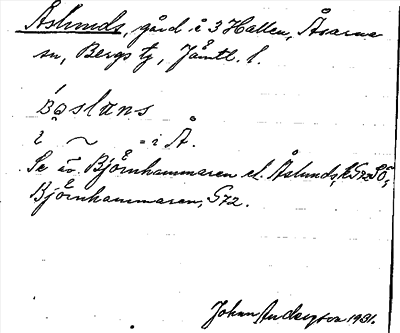 Åslunds, gård i 3 Hallen, Åsarne
sn, Bergs tg, Jämtl. l.
i ~ = i Å.
Se äv. Björnhammaren el. Åslunds,
Björnhammaren, S72.
Johan Anderson 1931.